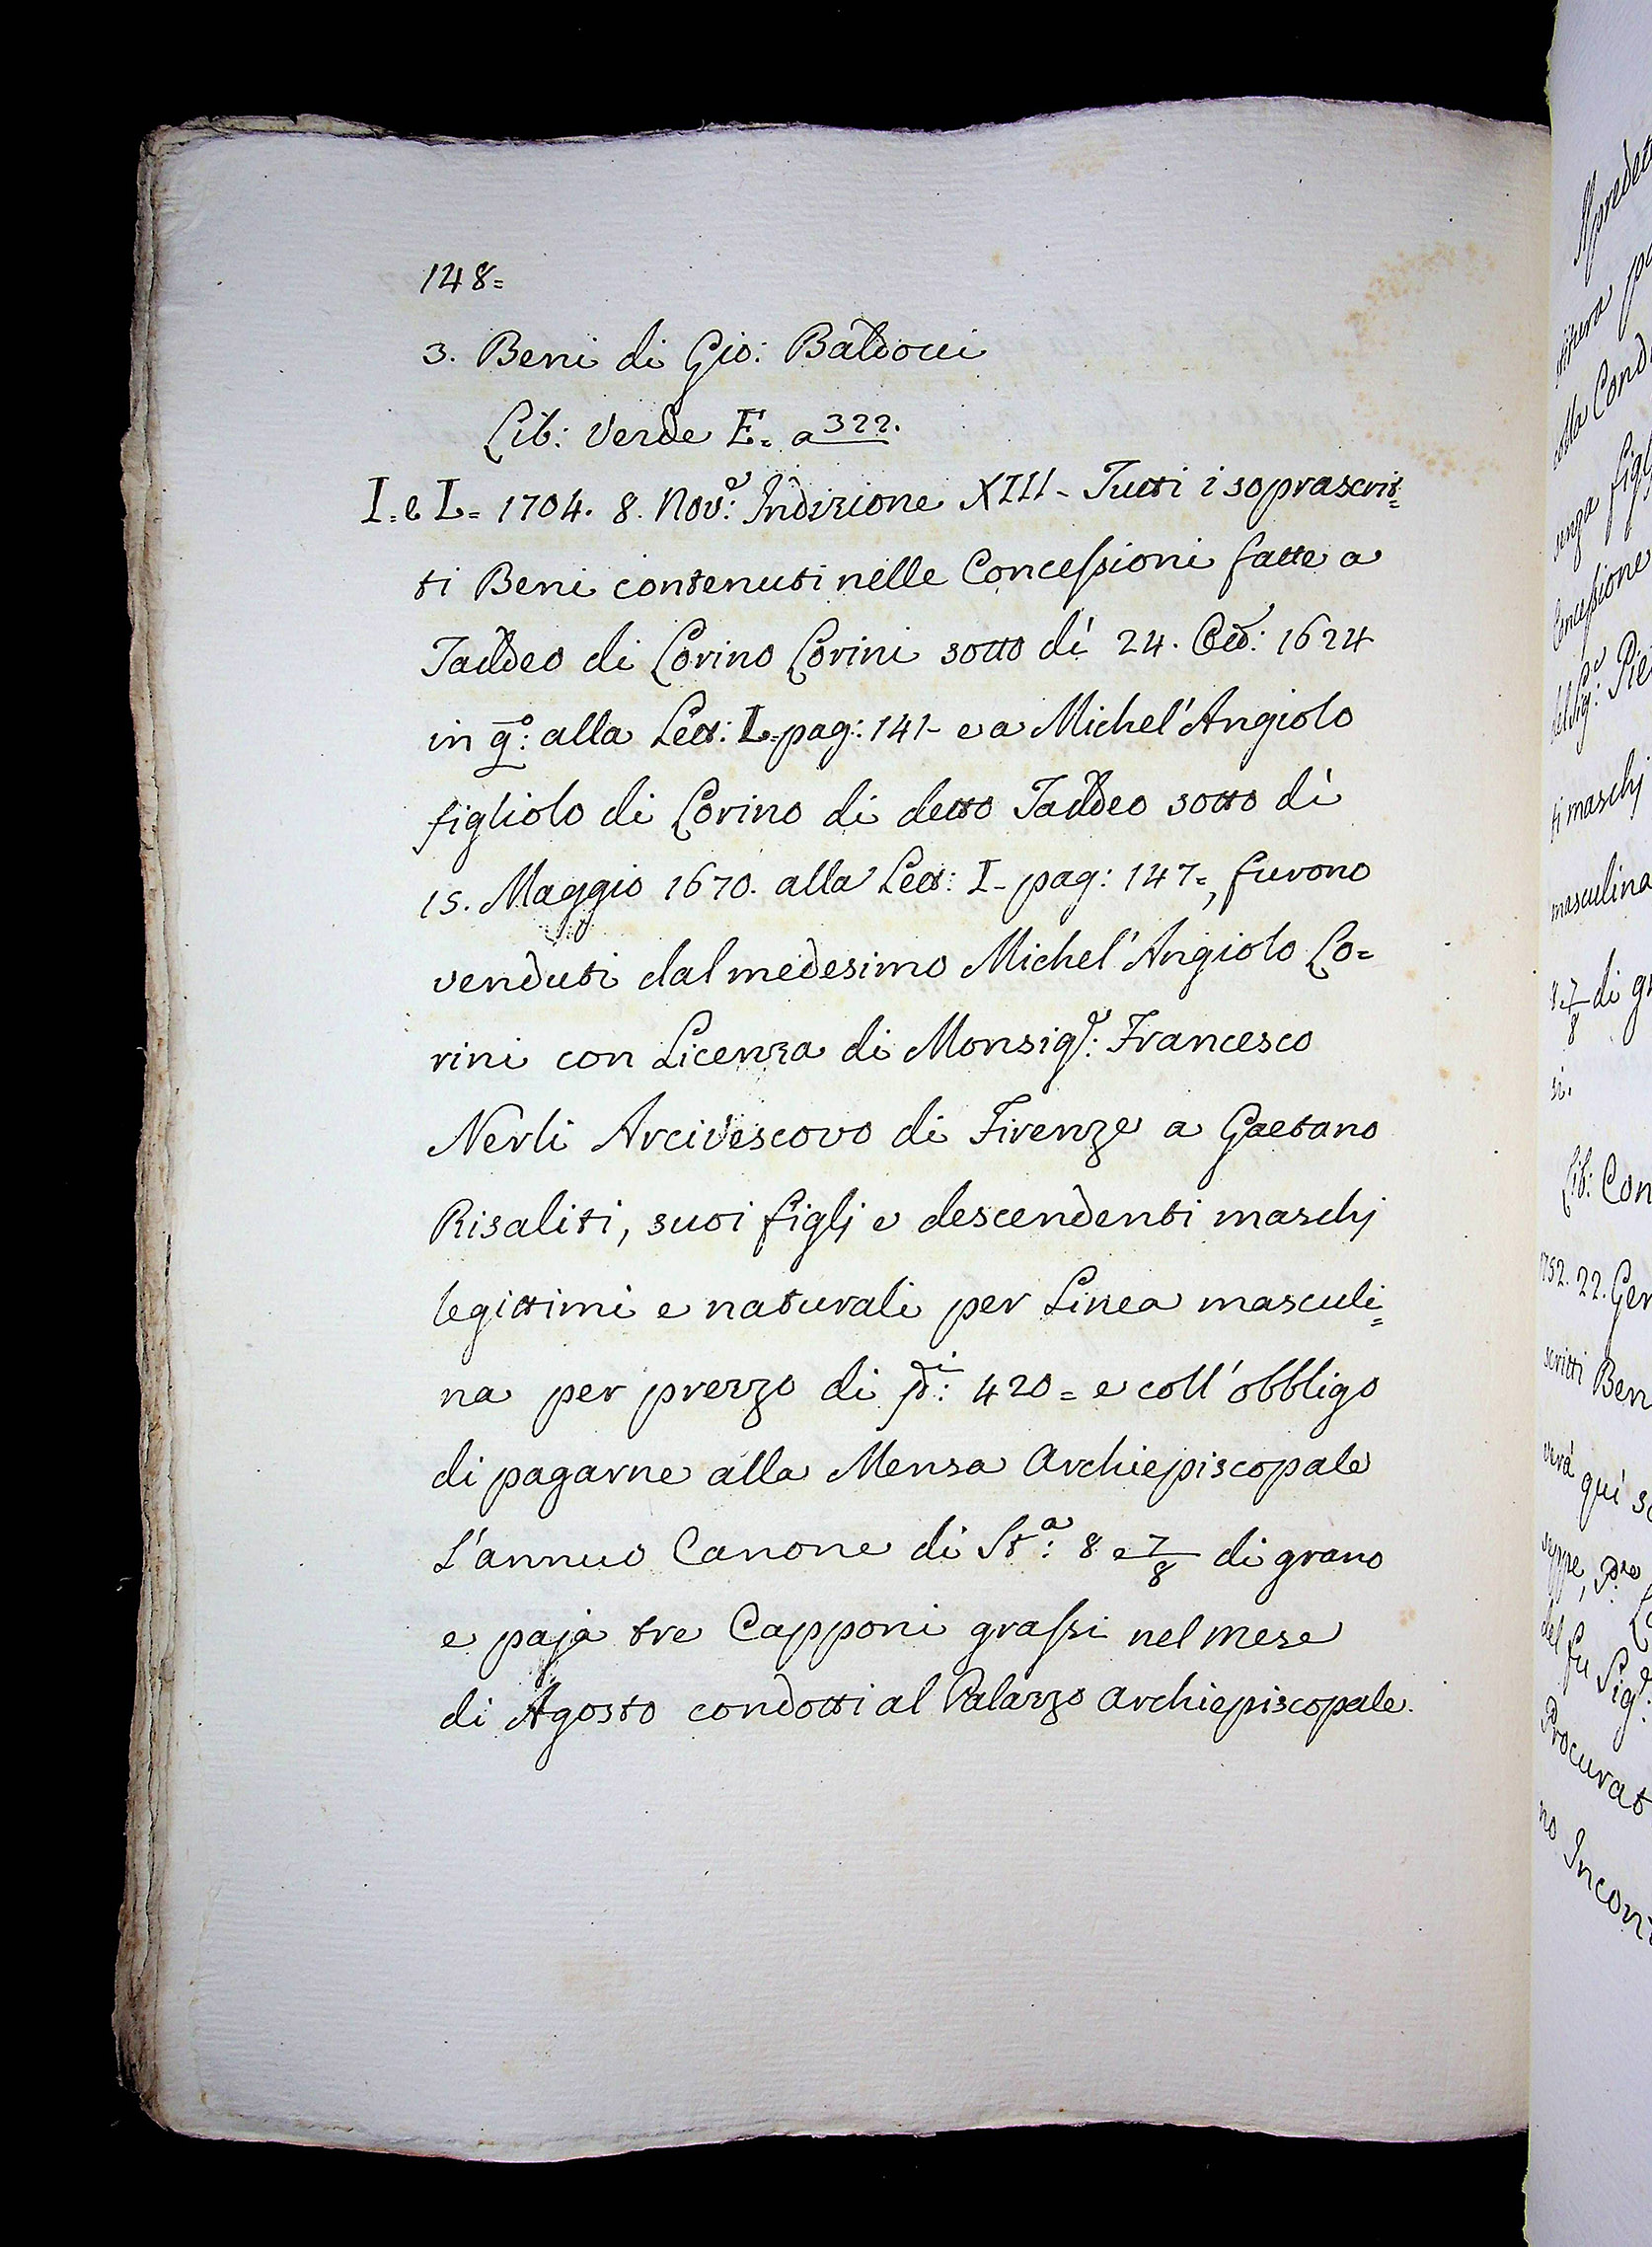 148=
3. Beni di Gio: Baldocci
Lib: Verde E= a 322.
I= e L= 1704. 8. Nov:e Indizione XIII- Tutti i soprascrit=
ti Beni contenuti nelle Concessioni fatte a
Taddeo di Corino Corini sotto dì 24. 1624
in q:o alla Lett: L= pag: 141- e a Michel'Angiolo
figliolo di Corino di detto Taddeo sotto dì
15. Maggio 1670. alla Lett: I- pag: 147=, furono
venduti dal medesimo Michel'Angiolo Co=
rini con Licenza di Monsig:e Francesco
Nerli Arcivescovo di Firenze a Gaetano
Risaliti, suoi figlj e descendenti maschj
legittimi e naturali per Linea masculi=
na per prezzo di 420= e coll'obbligo
di pagarne alla Mensa Archiepiscopale
L'annuo Canone di St:a 8 e 7/8 di grano
e paja tre Capponi grassi nel mese
di Agosto condotti al Palazzo Archiepiscopale.
senza
Concessione
del Sig:e
ti maschj
masculina
7/8 di
si.
Lib: Con
1752. 22. Gen
scritti Ben
quì
del fu Sig:e
Procurat
no Incon